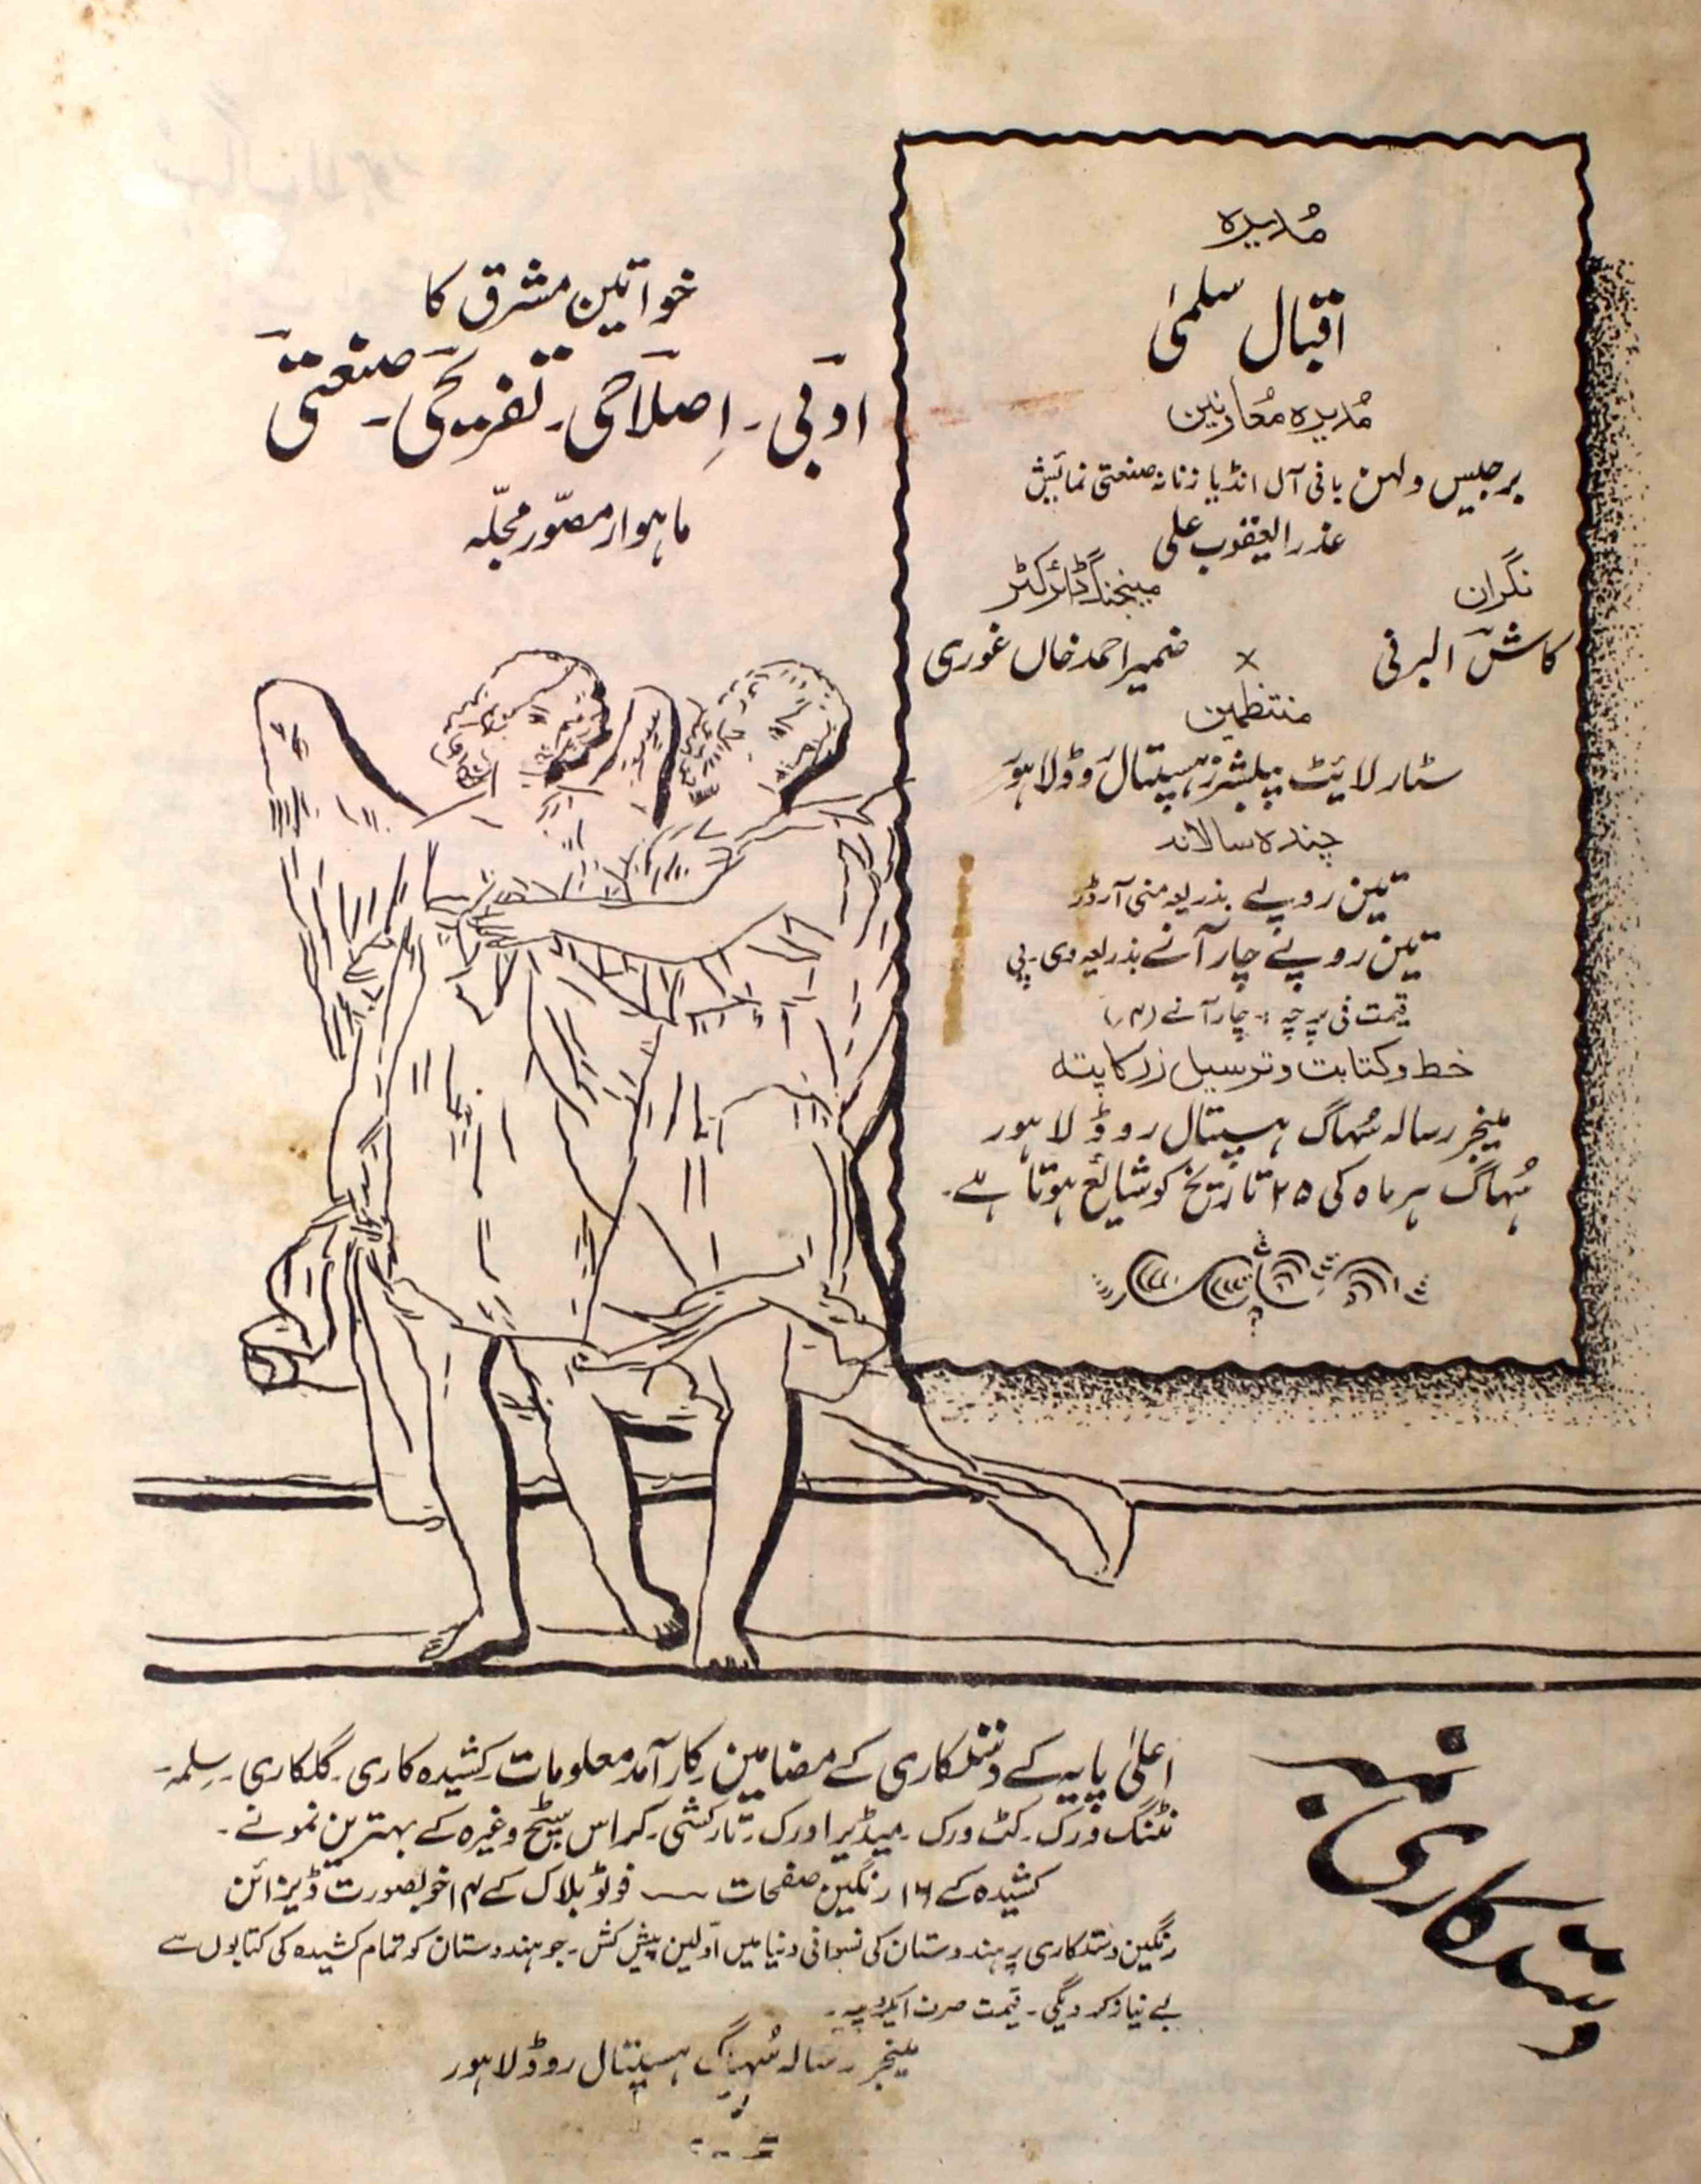 مُدیرہ
اقبال سلمیٰ
مُدیرہ معاونین
برجیس دلہن بانی آل انڈیا زنانہ صنعتی نمائیش
عذرا یعقوب علی
نگران
کاش البرنی
×
مینجنگ ڈائرکٹر
ضمیر احمد خاں غوری
منتظمین
سٹار لائیٹ پبلشرز ہسپتال روڈ لاہور
چندہ سالانہ
تین روپے بذریعہ منی آرڈر
تین روپے چار آنے بذریعہ وی۔ پی
قیمت فی پرچہ :۔ چار آنے (۴ر)
خط و کتابت و ترسیل زر کا پتہ
مینجر رسالہ سُہاگ ہسپتال روڈ لاہور
سُہاگ ہر ماہ کی ۲۵ تاریخ کو شائع ہوتا ہے۔
خواتین مشرق کا
ادبی۔ اِصلاحی۔ تفریحی۔ صنعتی
ماہوار مصوّر مجلّہ
دستکاری نمبر
اعلیٰ پایہ کے دستکاری کے مضامین۔ کارآمد معلومات۔ کشیدہ کاری۔ گلکاری۔ سِلمہ۔
نٹنگ ورک۔ کٹ ورک۔ میڈیرا ورک۔ تارکشی۔ کراس سٹیچ وغیرہ کے بہترین نمونے۔
کشیدہ کے ۱۶ رنگین صفحات ـــ فوٹو بلاک کے ۱۴ خوبصورت ڈیزائن
رنگین دستکاری پر ہندوستان کی نسوانی دنیا میں اوّلین پیش کش۔ جو ہندوستان کو تمام کشیدہ کی کتابوں سے
بے نیاز کر دیگی۔ قیمت صرف ایکروپیہ۔
مینجر رسالہ سُہاگ ہسپتال روڈ لاہور